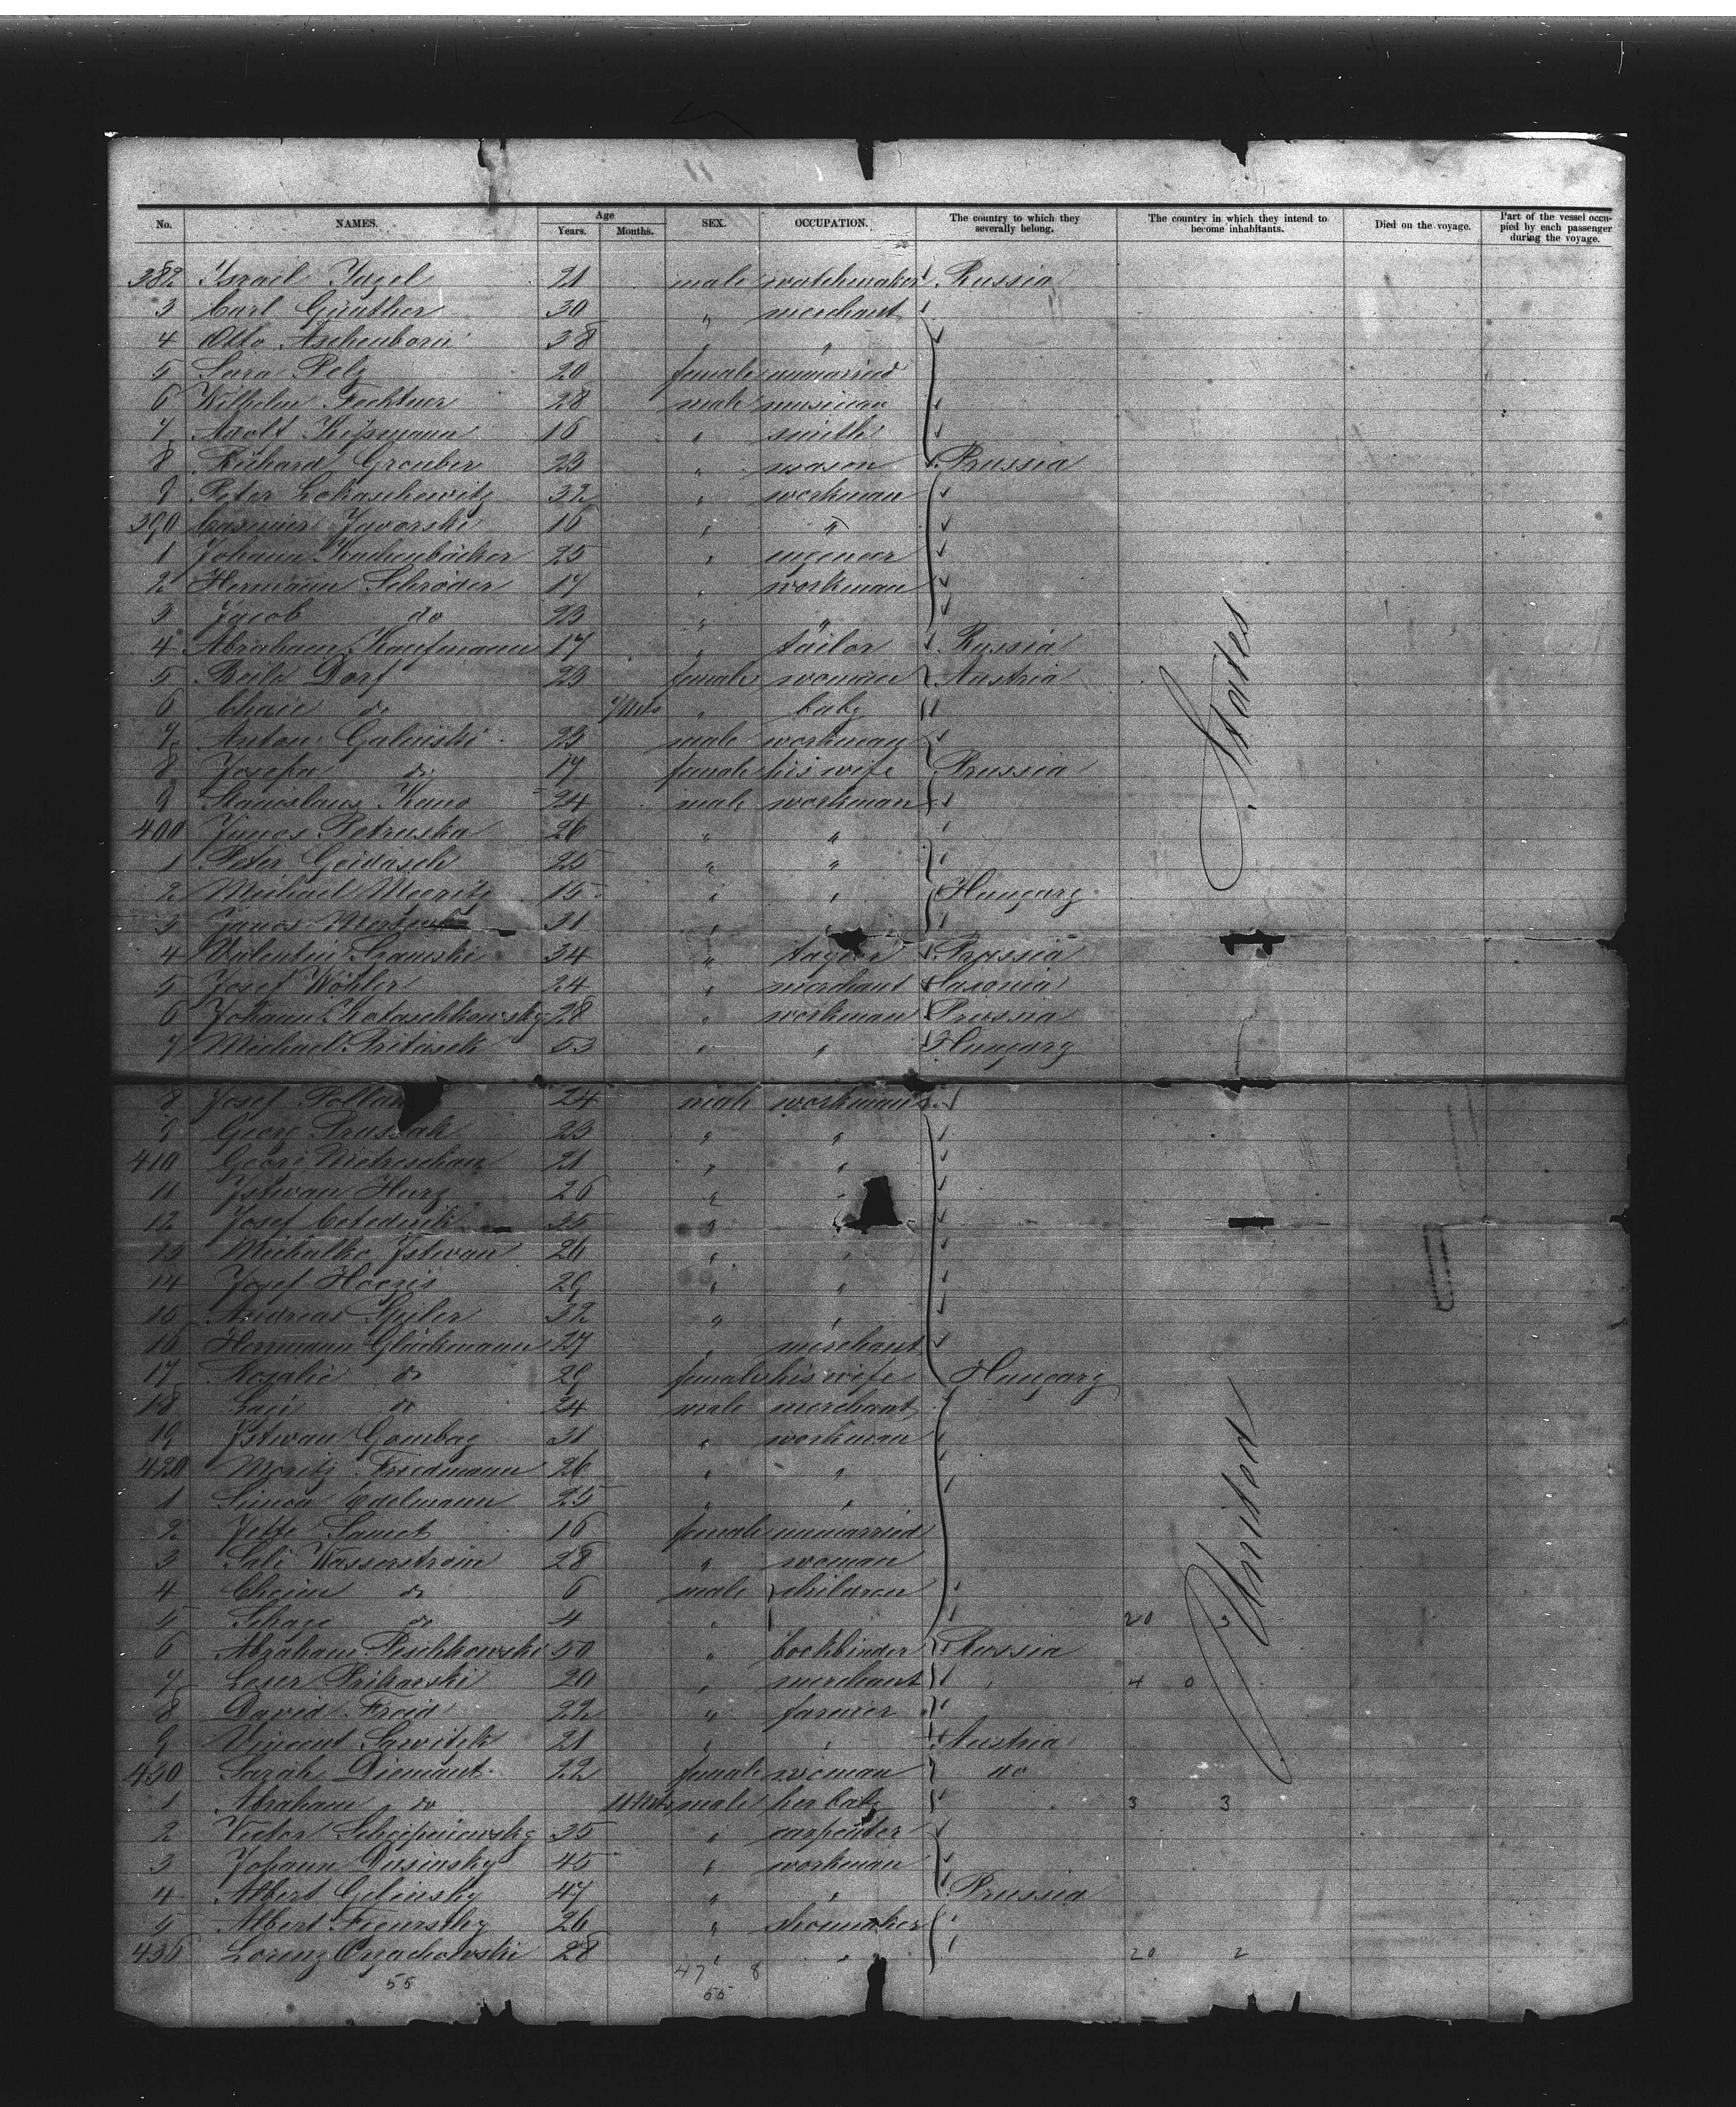 No. NAMES. Age Years. Months. SEX. OCCUPATION. The country to which they severally belong. The country in which they intend to become inhabitants. Died on the voyage. Part of the vessel occupied by each passenger during the voyage.
382 Israel Jagel 21 male watchmaker Russia
3 Carl Günther 30 " merchant
4 Otto Aschenborn 38 " "
5 Sara Pelz 20 female unmarried
6 Wilhelm Fechtner 28 male musician
7 Adolf 16 " smith
8 Richard Greuber 23 " mason Prussia
9 Peter Lokaschewitz 32 " workman
390 Casimir Jaworski 16 " "
1 Johann Kachenbäcker 25 " engeneer
2 Hermann Schröder 17 workman
3 Jacob do 23 " "
4 Abraham Kaufmann 17 " tailor Russia
5 Beile Dorf 23 female woman Austria
6 Chaie do " baby
7 Anton Galinski 23 male workman
8 Josefa do 17 female his wife Prussia
9 Stanislaus Kano 24 male workman
400 Janos Petruska 26 " "
1 Peter Geidasch 25 " "
2 Michael 15 " " Hungary
3 Janos 31 "
4 Valentin 34 " Prussia
5 Josef Wöhler 24 " merchant Saxonia
6 Johann Kataschkowsky 28 " workman Prussia
7 Michael Pritasek 53 " " Hungary
8 Josef 24 male workman
9 Georg Prussak 23 " "
410 Georg 21 " "
11 Istwan Hurz 26 " "
12 Josef 35 "
13 Michalko Istwan 26 " "
14 Josef 29 " "
15 Andreas 32 " "
16 Herrmann Glückmann 27 " merchant
17 Rosalie do 29 female his wife Hungary
18 do 24 male merchant
19 Istwan Gombag 31 " workman
420 Moritz Friedmann 26 " "
1 Simon Edelmann 25 " "
2 Jette Samet 16 female unmarried
3 Sali Wasserstrom 28 " woman
4 Chaim do 6 male children
5 do 4 " 20 3
6 Abraham Peschkowski 50 " bookbinder Russia
7 Leser 20 " merchant " 4 0
8 David Freid 22 " farmer
9 Vincent 21 " " Austria
430 Sarah Diemant 22 female woman do
1 Abraham do 11 Mts male her baby 3 3
2 Victor 35 " carpenter
3 Johann Dusinsky 45 " workman
4 Albert Gelinsky 47 " " Prussia
5 Albert 26 " shoemaker
436 Lorenz 28 " " 20 2
55 47 8
55
United States